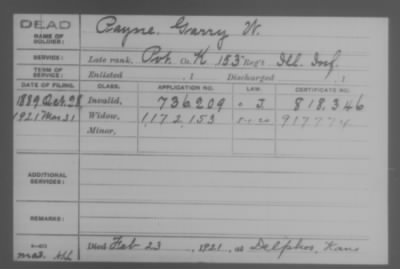 DEAD
NAME OF SOLDIER: Payne, Garry W.
SERVICE: Late rank, Pvt. Co. K 153 Reg't Ill. Inf.
TERM OF SERVICE: Enlisted , 1 Discharged , 1
DATE OF FILING. CLASS. APPLICATION NO. LAW. CERTIFICATE NO.
1889 Oct. 28 Invalid, 736209 J. 818,346
1921 Mar 31 Widow, 1,172,153 917774
Minor,
ADDITIONAL SERVICES:
REMARKS:
Died Feb 23, 1921, at Delphos, Kans